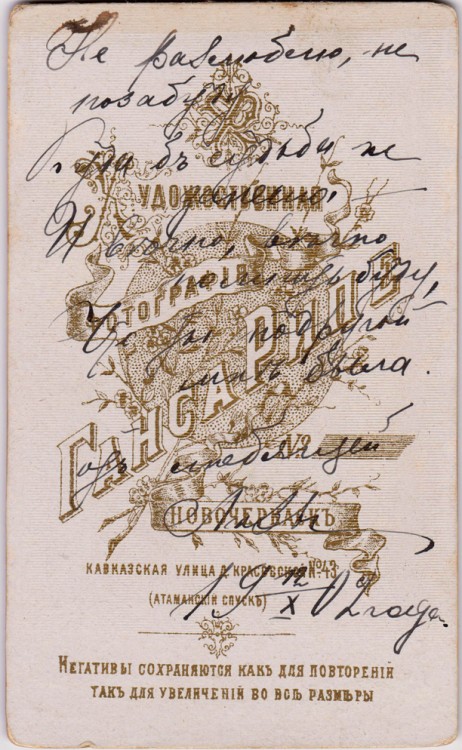 Не разлюблю, не
позабуду
Куда бъ судьба не
занесла,
И вѣчно, вѣчно
помнить буду,
Что ты подругой
мнѣ была.
отъ любящей
19 12/X 02 года.
ХУДОЖЕСТВЕННАЯ
ФОТОГРАФІЯ
ГАНСА
№
НОВОЧЕРКАСКЪ
КАВКАЗСКАЯ УЛИЦА Д. КРАСОВСКОЙ № 43.
(АТАМАНСКІЙ СПУСКЪ)
НЕГАТИВЫ СОХРАНЯЮТСЯ КАКЪ ДЛЯ ПОВТОРЕНІЙ
ТАКЪ ДЛЯ УВЕЛИЧЕНІЙ ВО ВСѢ РАЗМѢРЫ